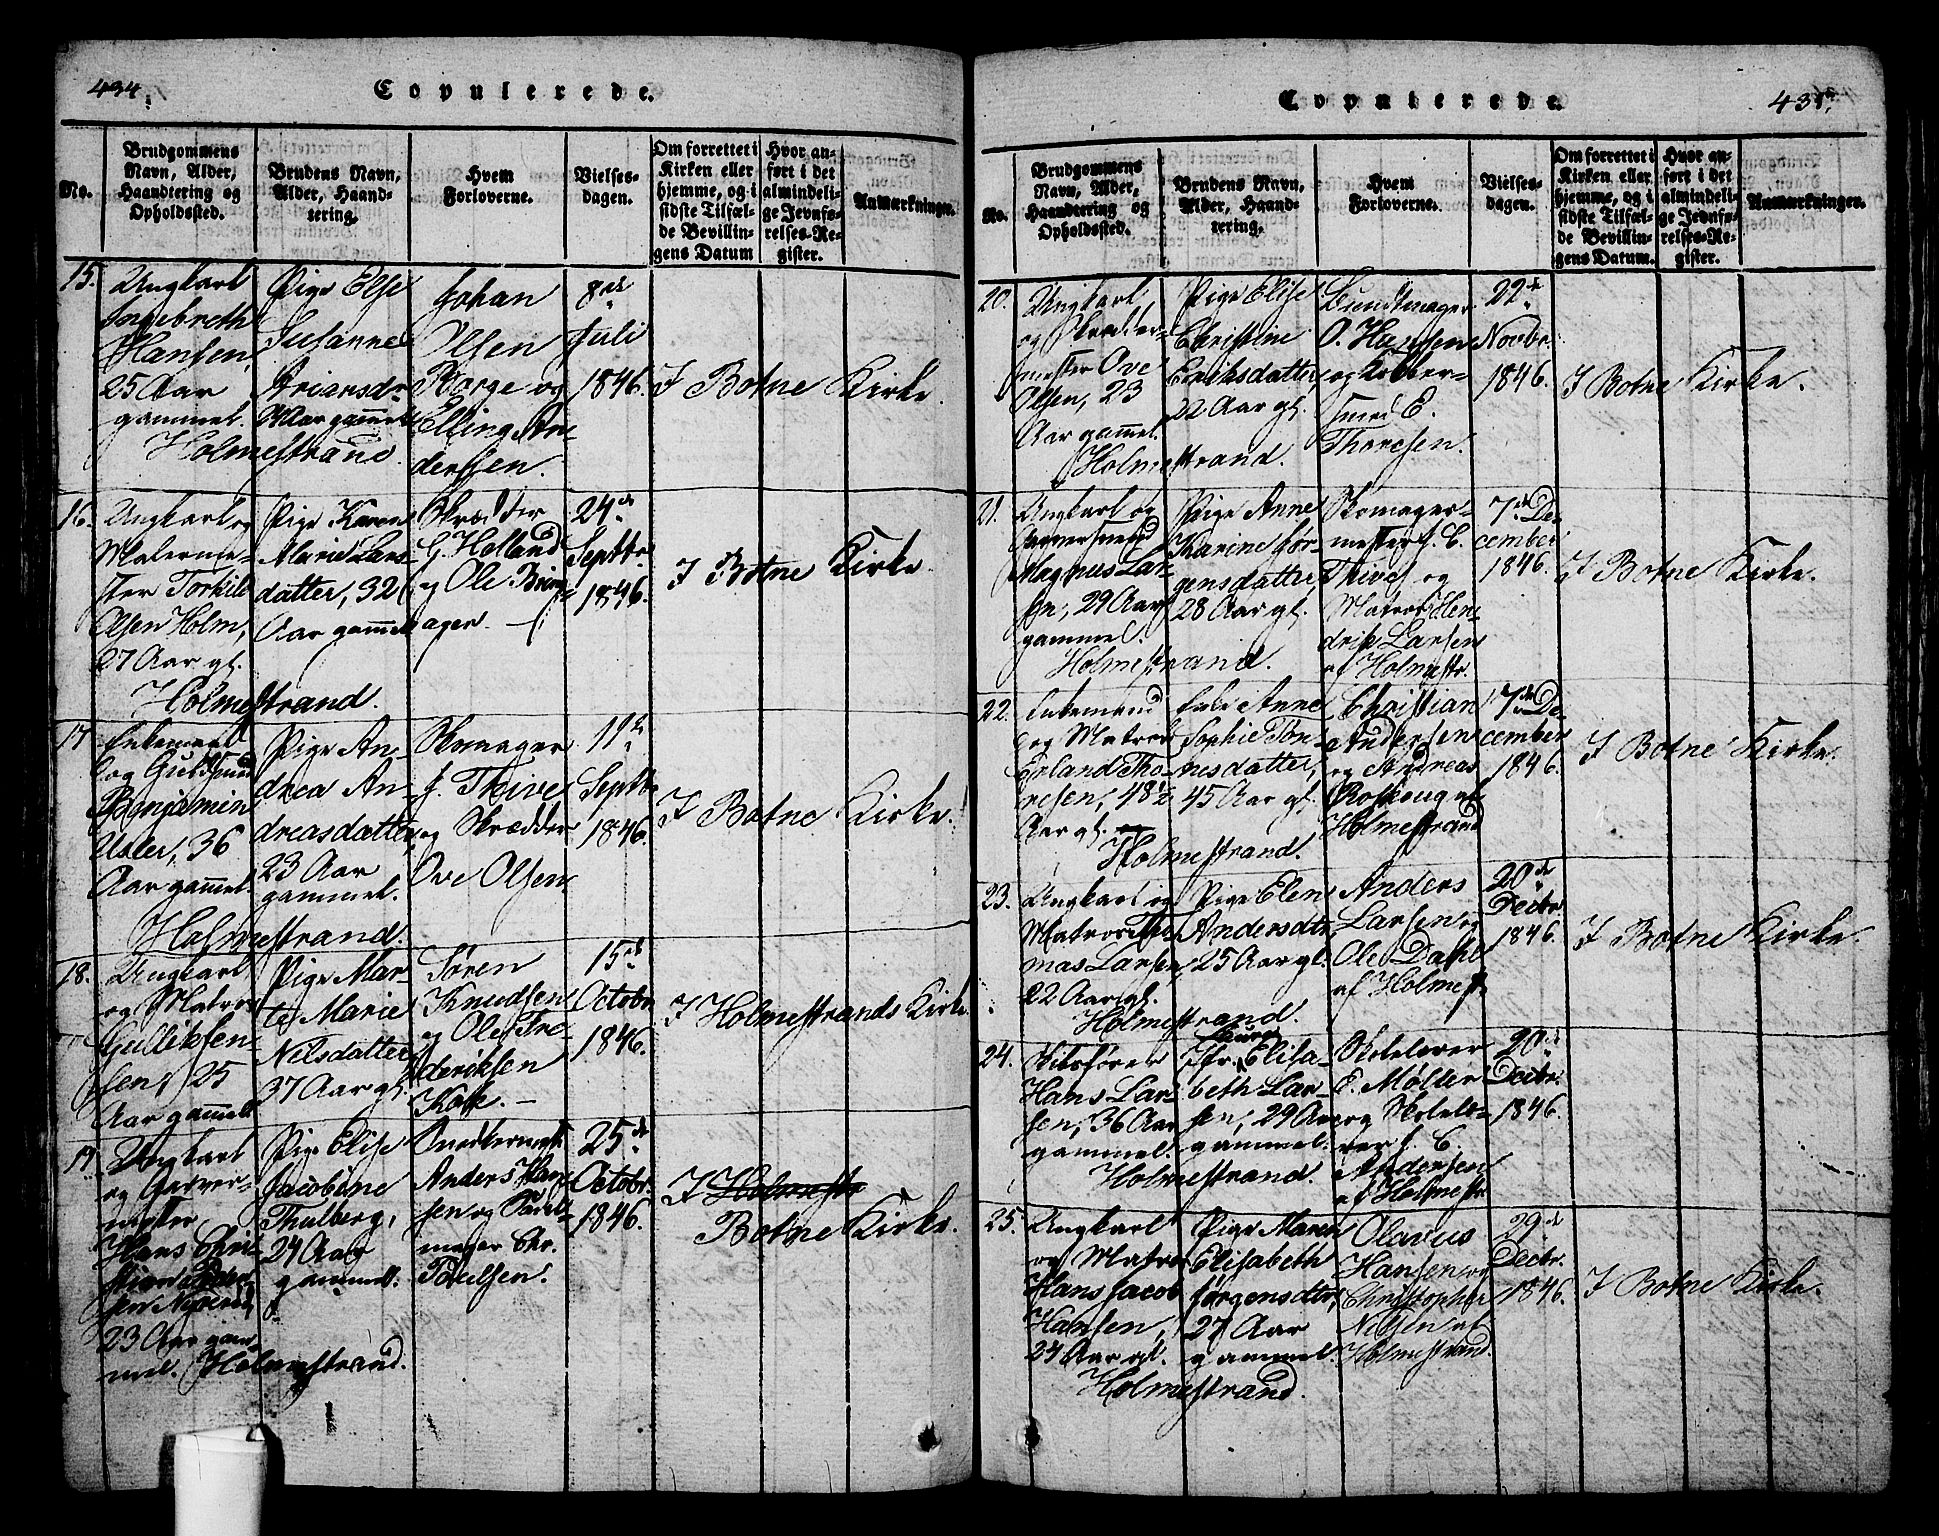 434.
Copulerede.
No.
Brudgommens Navn, Alder, Haandtering og Opholdssted.
Brudens Navn, Alder, Haandtering.
Hvem Forloverne.
Vielsesdagen.
Om forrettet i Kirken eller hjemme, og i sidste Tilfælde Bevillingens Datum
Hvor anført i det almindelige Jevnførelses-Register.
Anmærkninger.
15.
Ungkarl
Ingebreth
Hansen,
25 Aar
gammel.
Holmestrand
Pige Else
Susanne
Ariansdr
Aar gammel
Johan
Olsen
Borge og
Elling An-
derssen.
8de
Juli
1846.
I Botne Kirke.
16.
Ungkarl og
Malerme-
ster Torkild
Olsen Holm,
27 Aar gl.
Holmestrand.
Pige Karen
Marie Lars-
datter, 32
Aar gammel
Skrædder
G. Holland
og Ole
ager.
24de
Septbr
1846.
I Botne Kirke.
17
Enkemand
og Guldsmed
Benjamin
Usler, 36
Aar gammel.
Holmestrand.
Pige An-
drea An-
dreasdatter,
23 Aar
gammel.
Skomager
J. Thive
og Skrædder
Ove Olsen
11te
Septbr
1846.
I Botne Kirke.
18.
Ungkarl
og Matros
Gulliksen-
sen, 25
Aar gammel
Pige Mar-
te Marie
Nilsdatter
37 Aar gl.
Søren
Knudsen
og Ole Fre-
deriksen
15de
Octobr
1846.
I Holmestrands Kirke.
19.
Ungkarl
og Garver-
mester
Hans Chri-
stian
sen
23 Aar gam-
mel. Holmestrand.
Pige Elise
Jacobine
Thulberg,
24 Aar
gammel.
Anders Han-
sen og Sadel-
mager Chr.
Poulsen.
25de
Octobr.
1846.
I Holmestr
Botne Kirke.
Copulerede.
No.
Brudgommens Navn, Alder, Haandtering og Opholdssted.
Brudens Navn, Alder, Haandtering.
Hvem Forloverne.
Vielsesdagen.
Om forrettet i Kirken eller hjemme, og i sidste Tilfælde Bevillingens Datum.
Hvor anført i det almindelige Jevnførelses-Register.
Anmærkninger.
20.
Ungkarl
og Skrædder-
mester Ove
Olsen, 23
Aar gammel.
Holmestrand.
Pige Elise
Christine
Eriksdatter
22 Aar gl.
Bundtmager
O. Hansen
og Kobber-
smed E.
Thoresen.
22de
Novbr
1846.
I Botne Kirke.
21.
Ungkarl og
Garversvend
Magnus Lar-
sen, 29 Aar
gammel.
Holmestrand.
Pige Anne
Karine Jør-
gensdatter
28 Aar gl.
Skomager-
mester J. C.
Thive og
Matros Hen-
drik Larsen
af Holmestr.
7de De-
cember
1846.
I Botne Kirke.
22.
Enkemand
og Matros
Erland Tho-
resen, 48½
Aar gl.
Holmestrand.
Anne
Sophie Tøn-
nesdatter,
45 Aar gl.
Christian
Andersen
og Andreas
af
Holmestrand
7de De-
cember
1846.
I Botne Kirke.
23.
Ungkarl og
Matros Tho-
mas Larsen,
22 Aar gl.
Holmestrand.
Pige Elen
Andersdtr
25 Aar gl.
Anders
Larsen og
Ole Dahl
af Holmest
20de
Decbr.
1846.
I Botne Kirke.
24.
Hans Lar-
sen, 36 Aar
gammel.
Holmestrand.
Jfr. Elisa-
beth Lar-
sen, 29 Aar
gammel.
Skolelærer
E. Møller
og Skolelæ-
rer J. C.
Andersen
af Holmestr
20de
Decbr.
1846.
25.
Ungkarl
og Matros
Hans Jacob
Hansen,
24 Aar gl.
Holmestrand.
Pige Maren
Elisabeth
Jørgensdtr,
27 Aar
gammel.
Olavus
Hansen og
Christopher
Nilsen af
Holmestrand.
29de
Decbr.
1846.
I Botne Kirke.